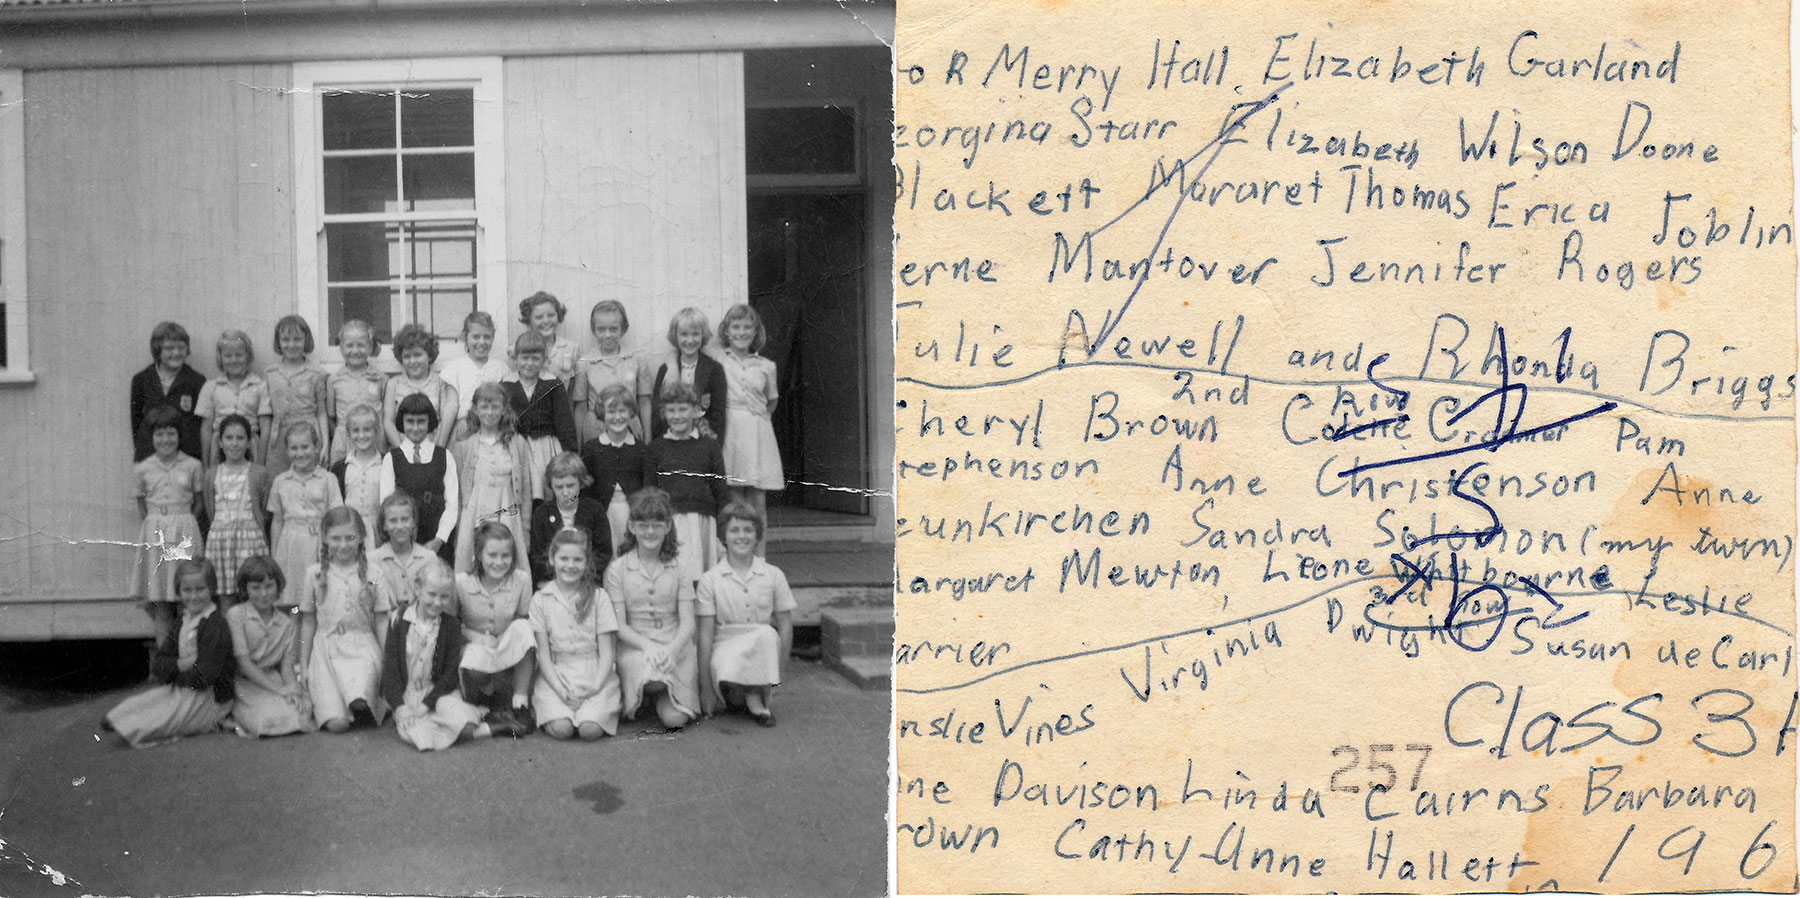 o R Merry Hall. Elizabeth Garland
eorgina Starr Elizabeth Wilson Doone
Blackett Mararet Thomas Erica Joblin
erne Mantover Jennifer Rogers
Julie Newell and Rhonda Briggs
2nd Row
Cheryl Brown Pam
tephenson Anne Christenson Anne
eunkirchen Sandra Solomon (my twin)
Margaret Mewton, Leone Whitbourne Leslie
arrier
3rd row
Virginia Dwight Susan de Carl
nslie Vines
Class 3A
257
ne Davison Linda Cairns Barbara
rown Cathy-Anne Hallett
196